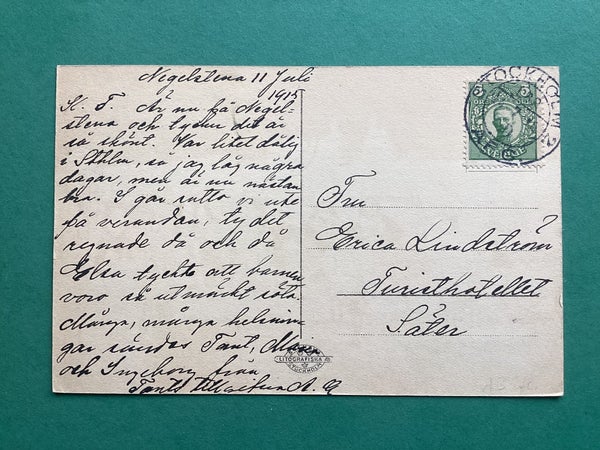 Negelstena 11 Juli
1915
K. F. Är nu på Negel-
stena och tycker det är
så skönt. Var litet dålig
i Sthlm, så jag låg några
dagar, men är nu nästan
bra. I går sutto vi ute
på verandan, ty det
regnade då och då
Elsa tyckte att barnen
voro så utmärkt söta.
Många, många helsnin-
gar sändas Tant, Maria
och Ingeborg från
Tants tillgifna A.
Fru
Erica Lindström
Turisthotellet
Säter
STOCKHOLM 2
5 ÖRE 5
SVERIGE
LITOGRAFISKA
STOCKHOLM